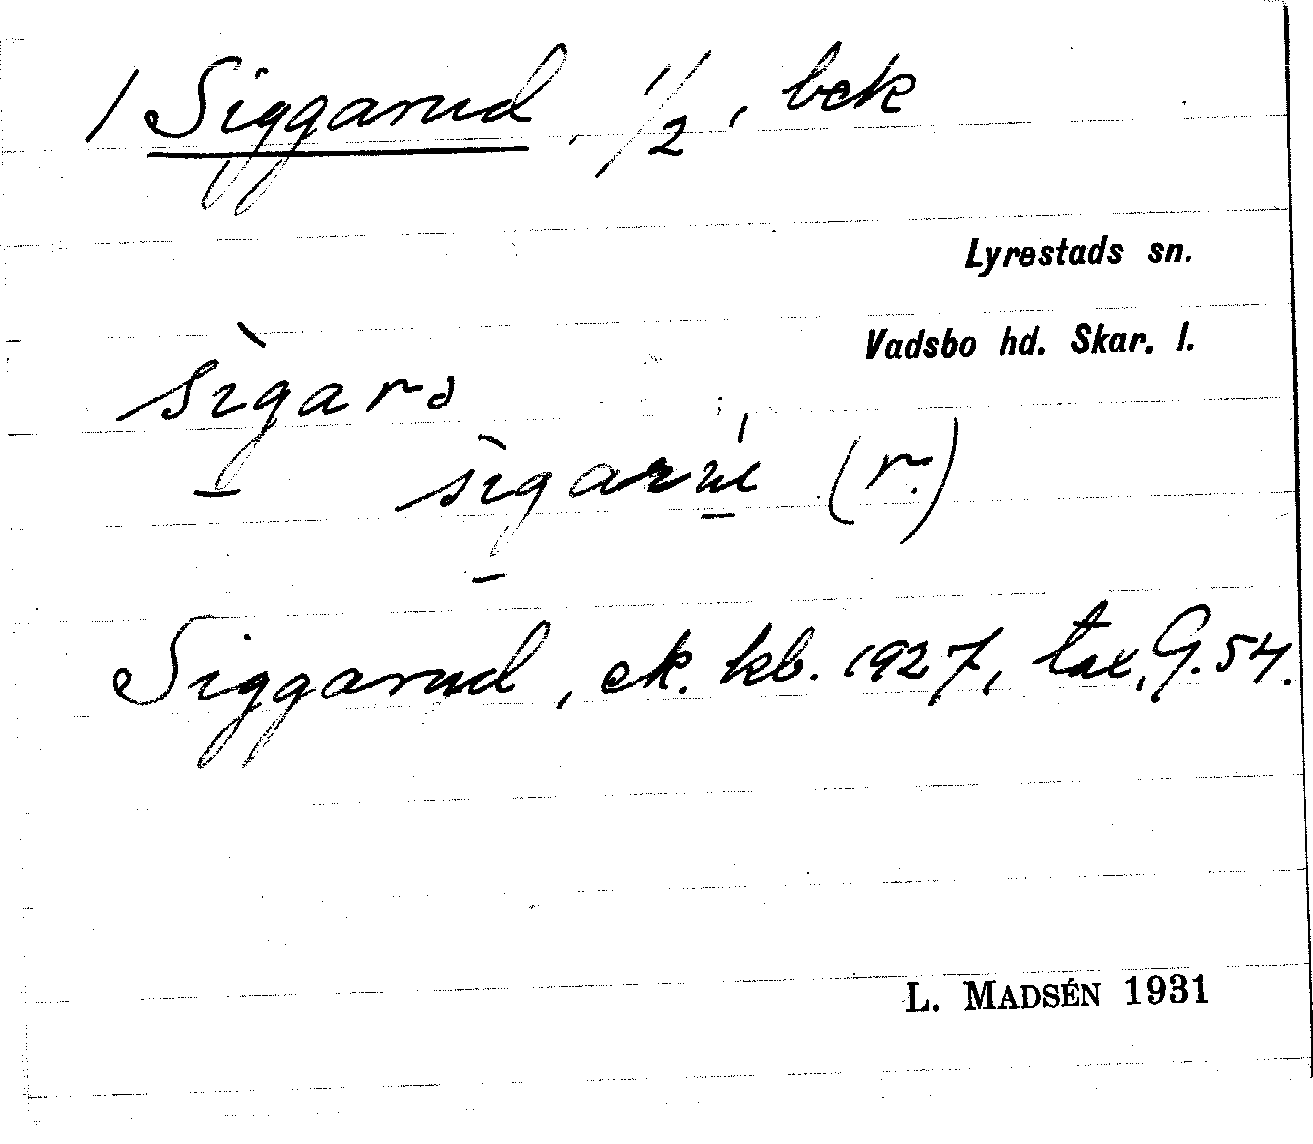 / Siggarud, 1/2, bek
Lyrestads sn.
Vadsbo hd. Skar. l.
(r.)
Siggarud, ek. kb. 1927, tax, G. 54.
L. MADSÉN 1931